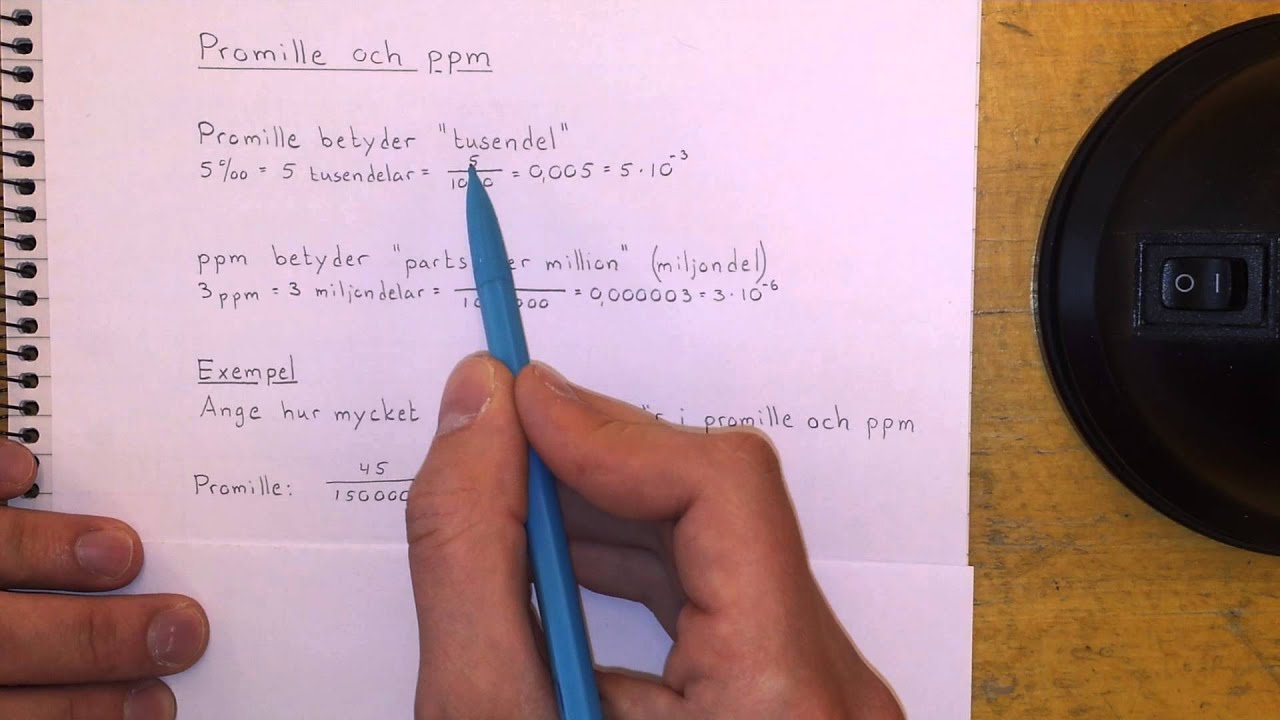 Promille och ppm
Promille betyder "tusendel"
5‰ = 5 tusendelar = 5/1000 = 0,005 = 5·10⁻³
ppm betyder "parts per million" (miljondel)
3 ppm = 3 miljondelar = = 0,000003 = 3·10⁻⁶
Exempel
Ange hur mycket i promille och ppm
Promille: 45/150000
O I